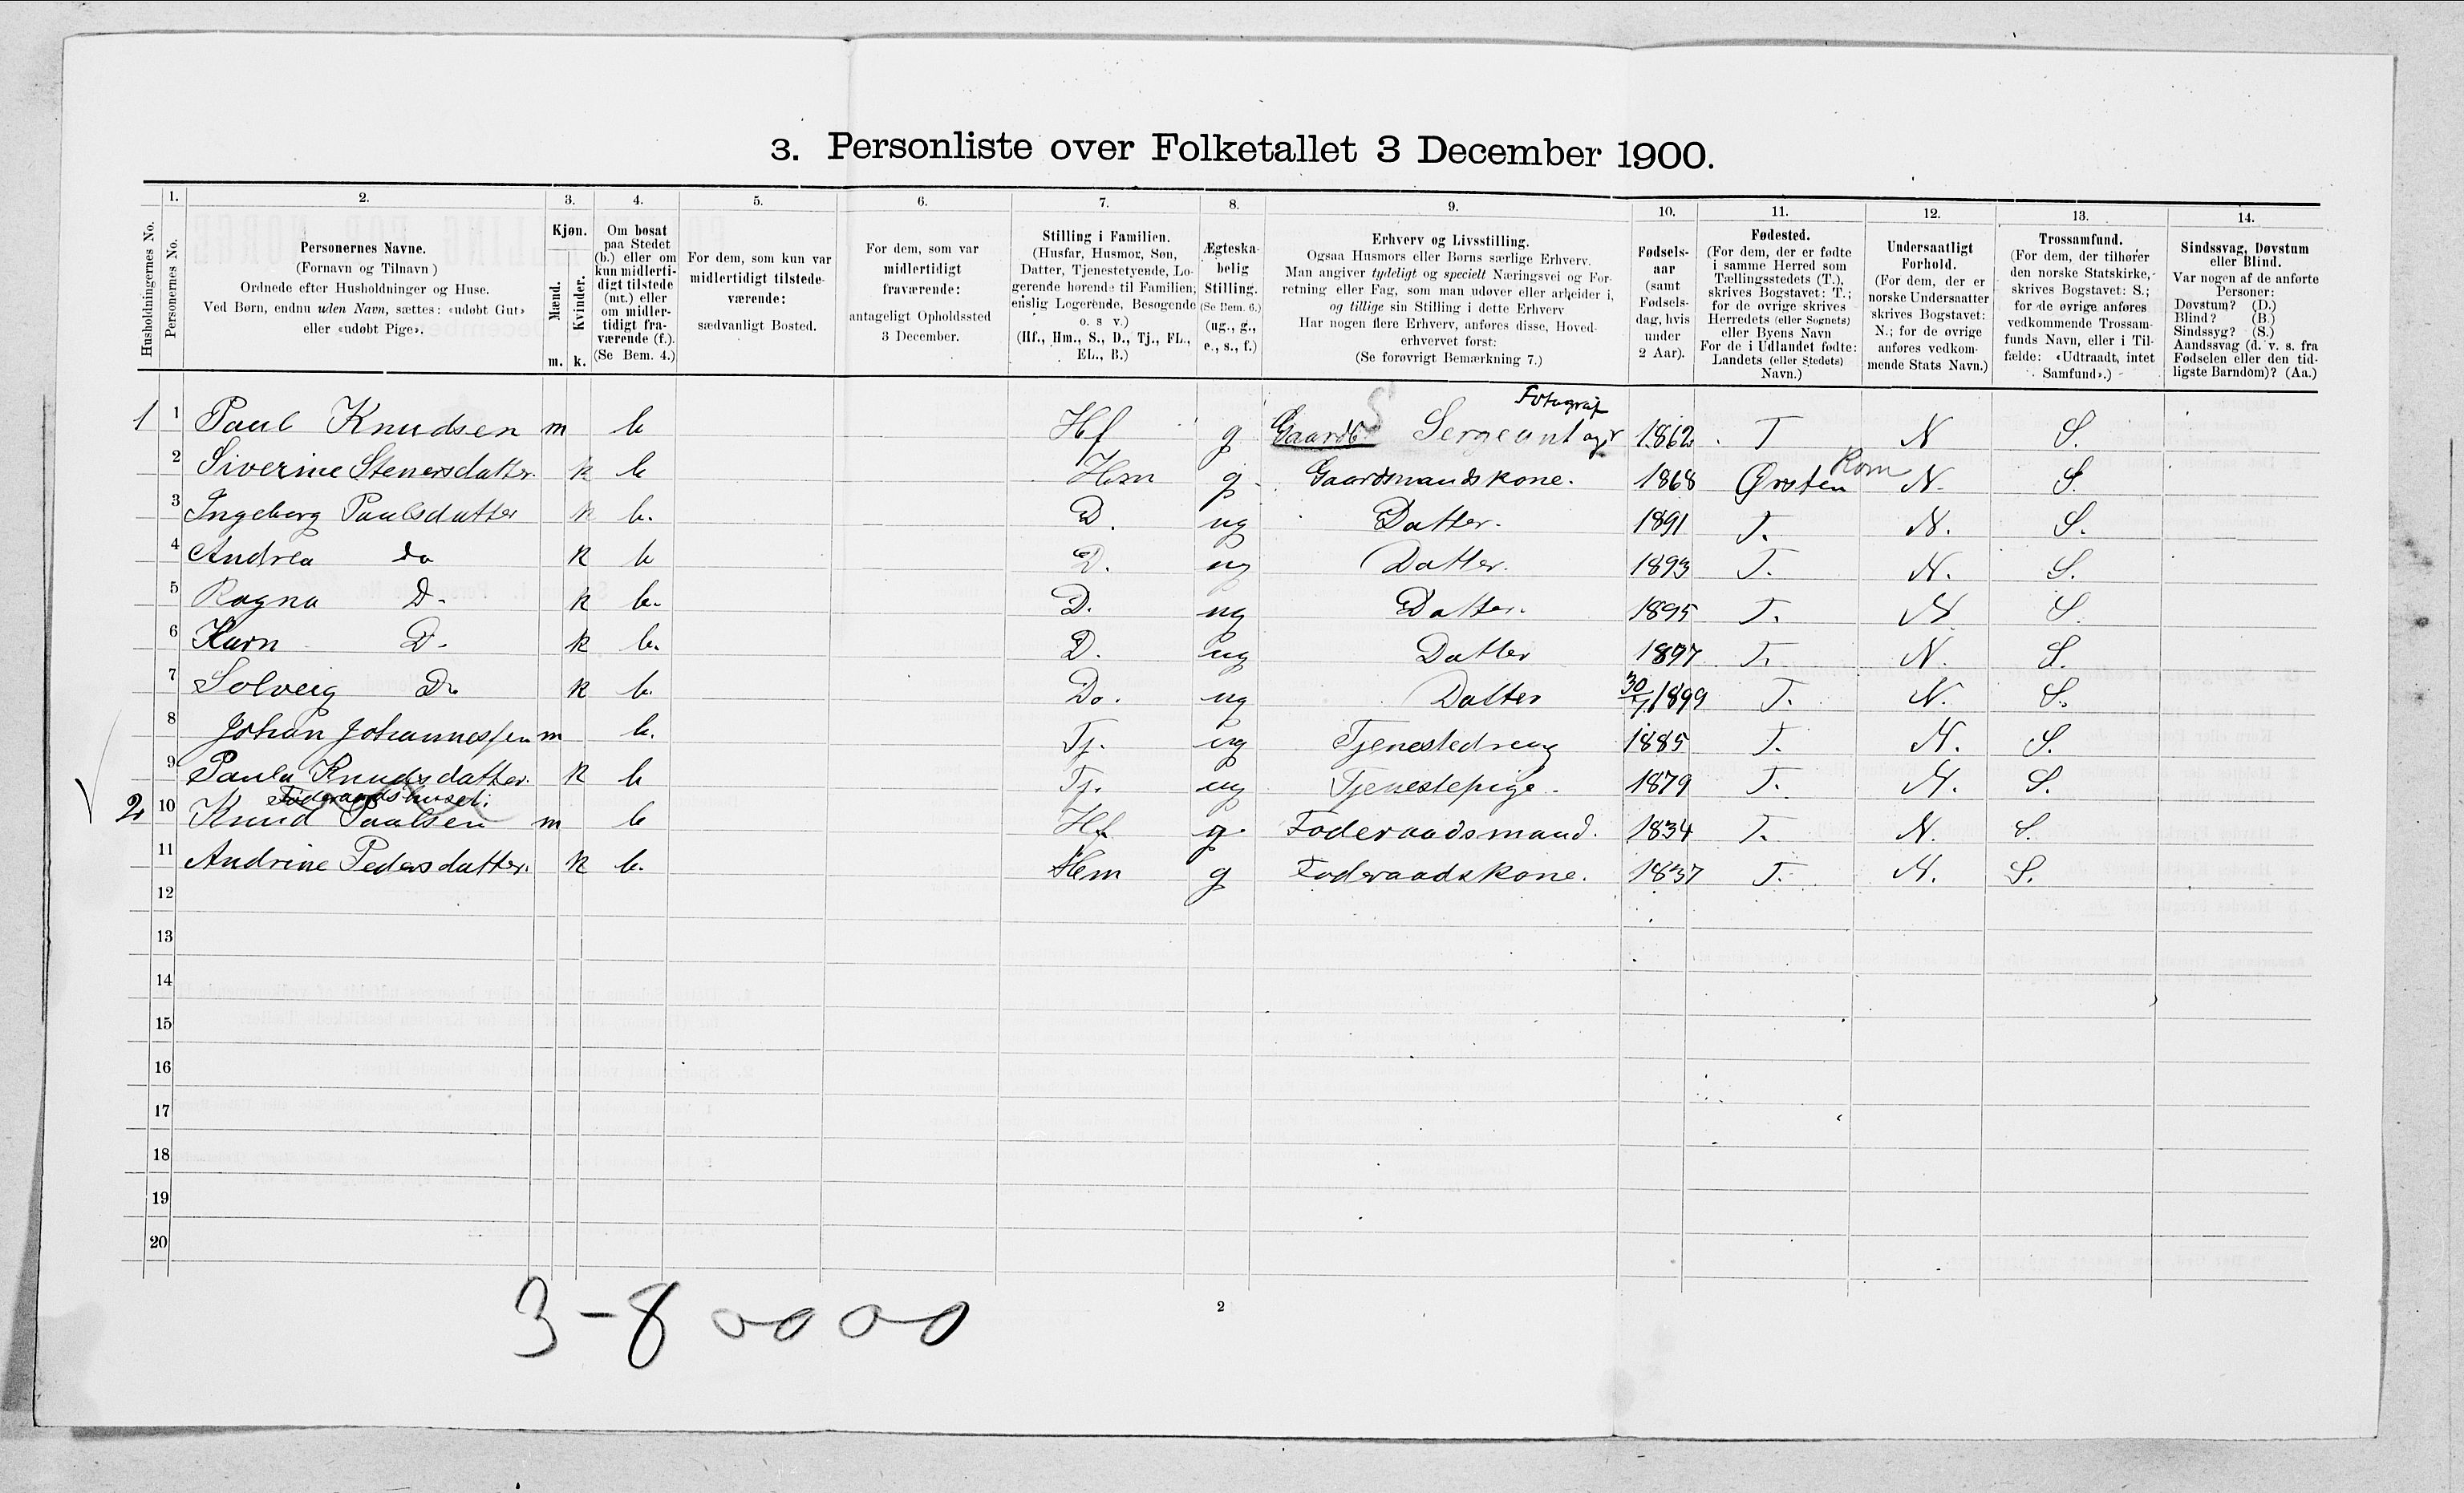 3. Personliste over Folketallet 3 December 1900.
1. 2. 3. 4. 5. 6. 7. 8. 9. 10. 11. 12. 13. 14.
Husholdningernes No.
Personernes No.
Personernes Navne.
(Fornavn og Tilnavn)
Ordnede efter Husholdninger og Huse.
Ved Børn, endnu uden Navn, sættes: «udøbt Gut»
eller «udøbt Pige».
Kjøn.
Mænd.
Kvinder.
m. k.
Om bosat
paa Stedet
(b.) eller om
kun midlerti-
digt tilstede
(mt.) eller
om midler-
tidigt fra-
værende (f.).
(Se Bem. 4.)
For dem, som kun var
midlertidigt tilstede-
værende:
sædvanligt Bosted.
For dem, som var
midlertidigt
fraværende:
antageligt Opholdssted
3 December.
Stilling i Familien.
(Husfar, Husmor, Søn,
Datter, Tjenestetyende, Lo-
gerende hørende til Familien,
enslig Logerende, Besøgende
o. s v.)
(Hf., Hm., S., D., Tj., FL.,
EL., B.)
Ægteska-
belig
Stilling.
(Se Bem. 6.)
(ug., g.,
e., s., f.)
Erhverv og Livsstilling.
Ogsaa Husmors eller Børns særlige Erhverv.
Man angiver tydeligt og specielt Næringsvei og For-
retning eller Fag, som man udøver eller arbeider i,
og tillige sin Stilling i dette Erhverv
Har nogen flere Erhverv, anføres disse, Hoved-
erhvervet først:
(Se forøvrigt Bemærkning 7.)
Fødsels-
aar
(samt
Fødsels-
dag, hvis
under
2 Aar).
Fødested.
(For dem, der er fødte
i samme Herred som
Tællingsstedets (T.),
skrives Bogstavet: T.;
for de øvrige skrives
Herredets (eller Sognets)
eller Byens Navn
For de i Udlandet fødte:
Landets (eller Stedets)
Navn.)
Undersaatligt
Forhold.
(For dem, der er
norske Undersaatter
skrives Bogstavet:
N.; for de øvrige
anføres vedkom-
mende Stats Navn.)
Trossamfund.
(For dem, der tilhører
den norske Statskirke,
skrives Bogstavet: S.;
for de øvrige anføres
vedkommende Trossam-
funds Navn, eller i Til-
fælde: «Udtraadt, intet
Samfund».)
Sindssvag, Døvstum
eller Blind.
Var nogen af de anførte
Personer:
Døvstum? (D.)
Blind? (B.)
Sindssyg? (S.)
Aandssvag (d. v. s. fra
Fødselen eller den tid-
ligste Barndom)? (Aa.)
Fotograf
1 1 Paul Knudsen m b Hf g Gaardb S Sergeant og 1862 T N S.
Rom
2 Siverine Stenersdatter k b Hm g Gaardmandskone. 1868 Ørsten N. S.
3 Ingeborg Paulsdatter k b. D. ug Datter. 1891 T. N. S.
4 Andrea do k b D. ug Datter. 1893 T. N. S.
5 Ragna D. k b. D. ug Datter. 1895 T. N S.
6 Karn D. k b. D. ug Datter 1897 T. N. S.
7 Solveig Do k b. Do. ug Datter 30/7 1899 T. N. S.
8 Johan Johannessen m b. Tj. ug Tjenestedreng 1885 T. N. S.
9 Paula Knudsdatter. k b Tj. ug Tjenestepige. 1879 T. N. S.
Føderaadshuset:
2 10 Knud Paulsen m b Hf g. Foderaadsmand. 1834 T. N. S.
11 Andrine Pedersdatter. k b. Hm g Foderaadskone. 1837 T. N. S.
12
13
14
15
16
17
18
19
20
3 - 8
2